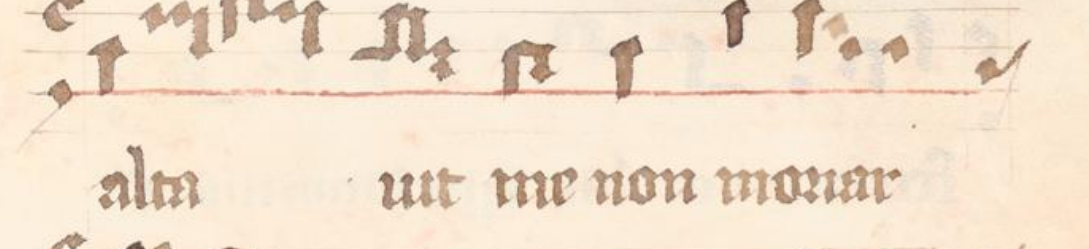 alta uit me non moriar